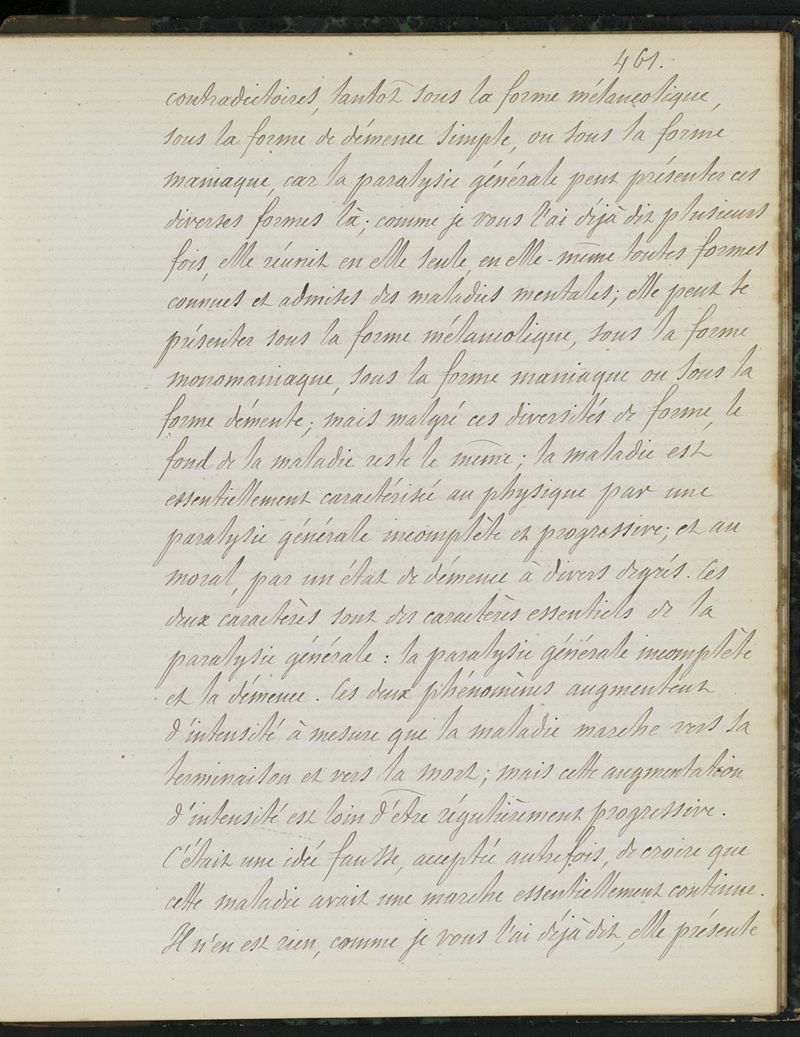 461.
contradictoires, tantôt sous la forme mélancolique,
sous la forme de démence simple, ou sous la forme
maniaque, car la paralysie générale peut présenter ces
diverses formes là; comme je vous l'ai déjà dit plusieurs
fois, elle réunit en elle seule, en elle-même toutes formes
connues et admises des maladies mentales; elle peut se
présenter sous la forme mélancolique, sous la forme
monomaniaque, sous la forme maniaque ou sous la
forme démente; mais malgré ces diversités de forme, le
fond de la maladie reste le même; la maladie est
essentiellement caractérisée au physique par une
paralysie générale incomplète et progressive; et au
moral, par un état de démence à divers degrés. Ces
deux caractères sont des caractères essentiels de la
paralysie générale: la paralysie générale incomplète
et la démence. Ces deux phénomènes augmentent
d'intensité à mesure que la maladie marche vers sa
terminaison et vers la mort; mais cette augmentation
d'intensité est loin d'être régulièrement progressive.
C'était une idée fausse, acceptée autrefois, de croire que
cette maladie avait une marche essentiellement continue.
Il n'en est rien, comme je vous l'ai déjà dit, elle présente